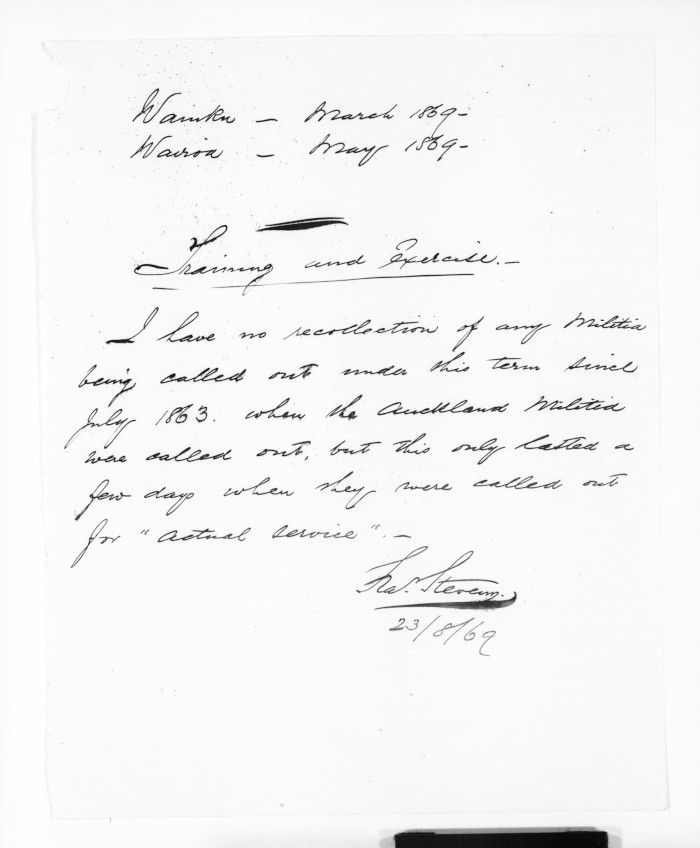 Waiuku — March 1869 -
Wairoa — May 1869 -
Training and Exercise. -
I have no recollection of any Militia
being called out under this term since
July 1863. when the Auckland Militia
were called out, but this only lasted a
few days when they were called out
for "actual service". -
Fras. Stevens.
23/8/69